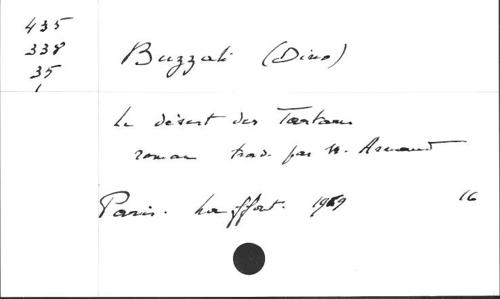 435
338
35
1
Buzzati (Dino)
Le désert des Tartares
roman trad. par M. Arnaud
Paris. Laffont. 1969 16